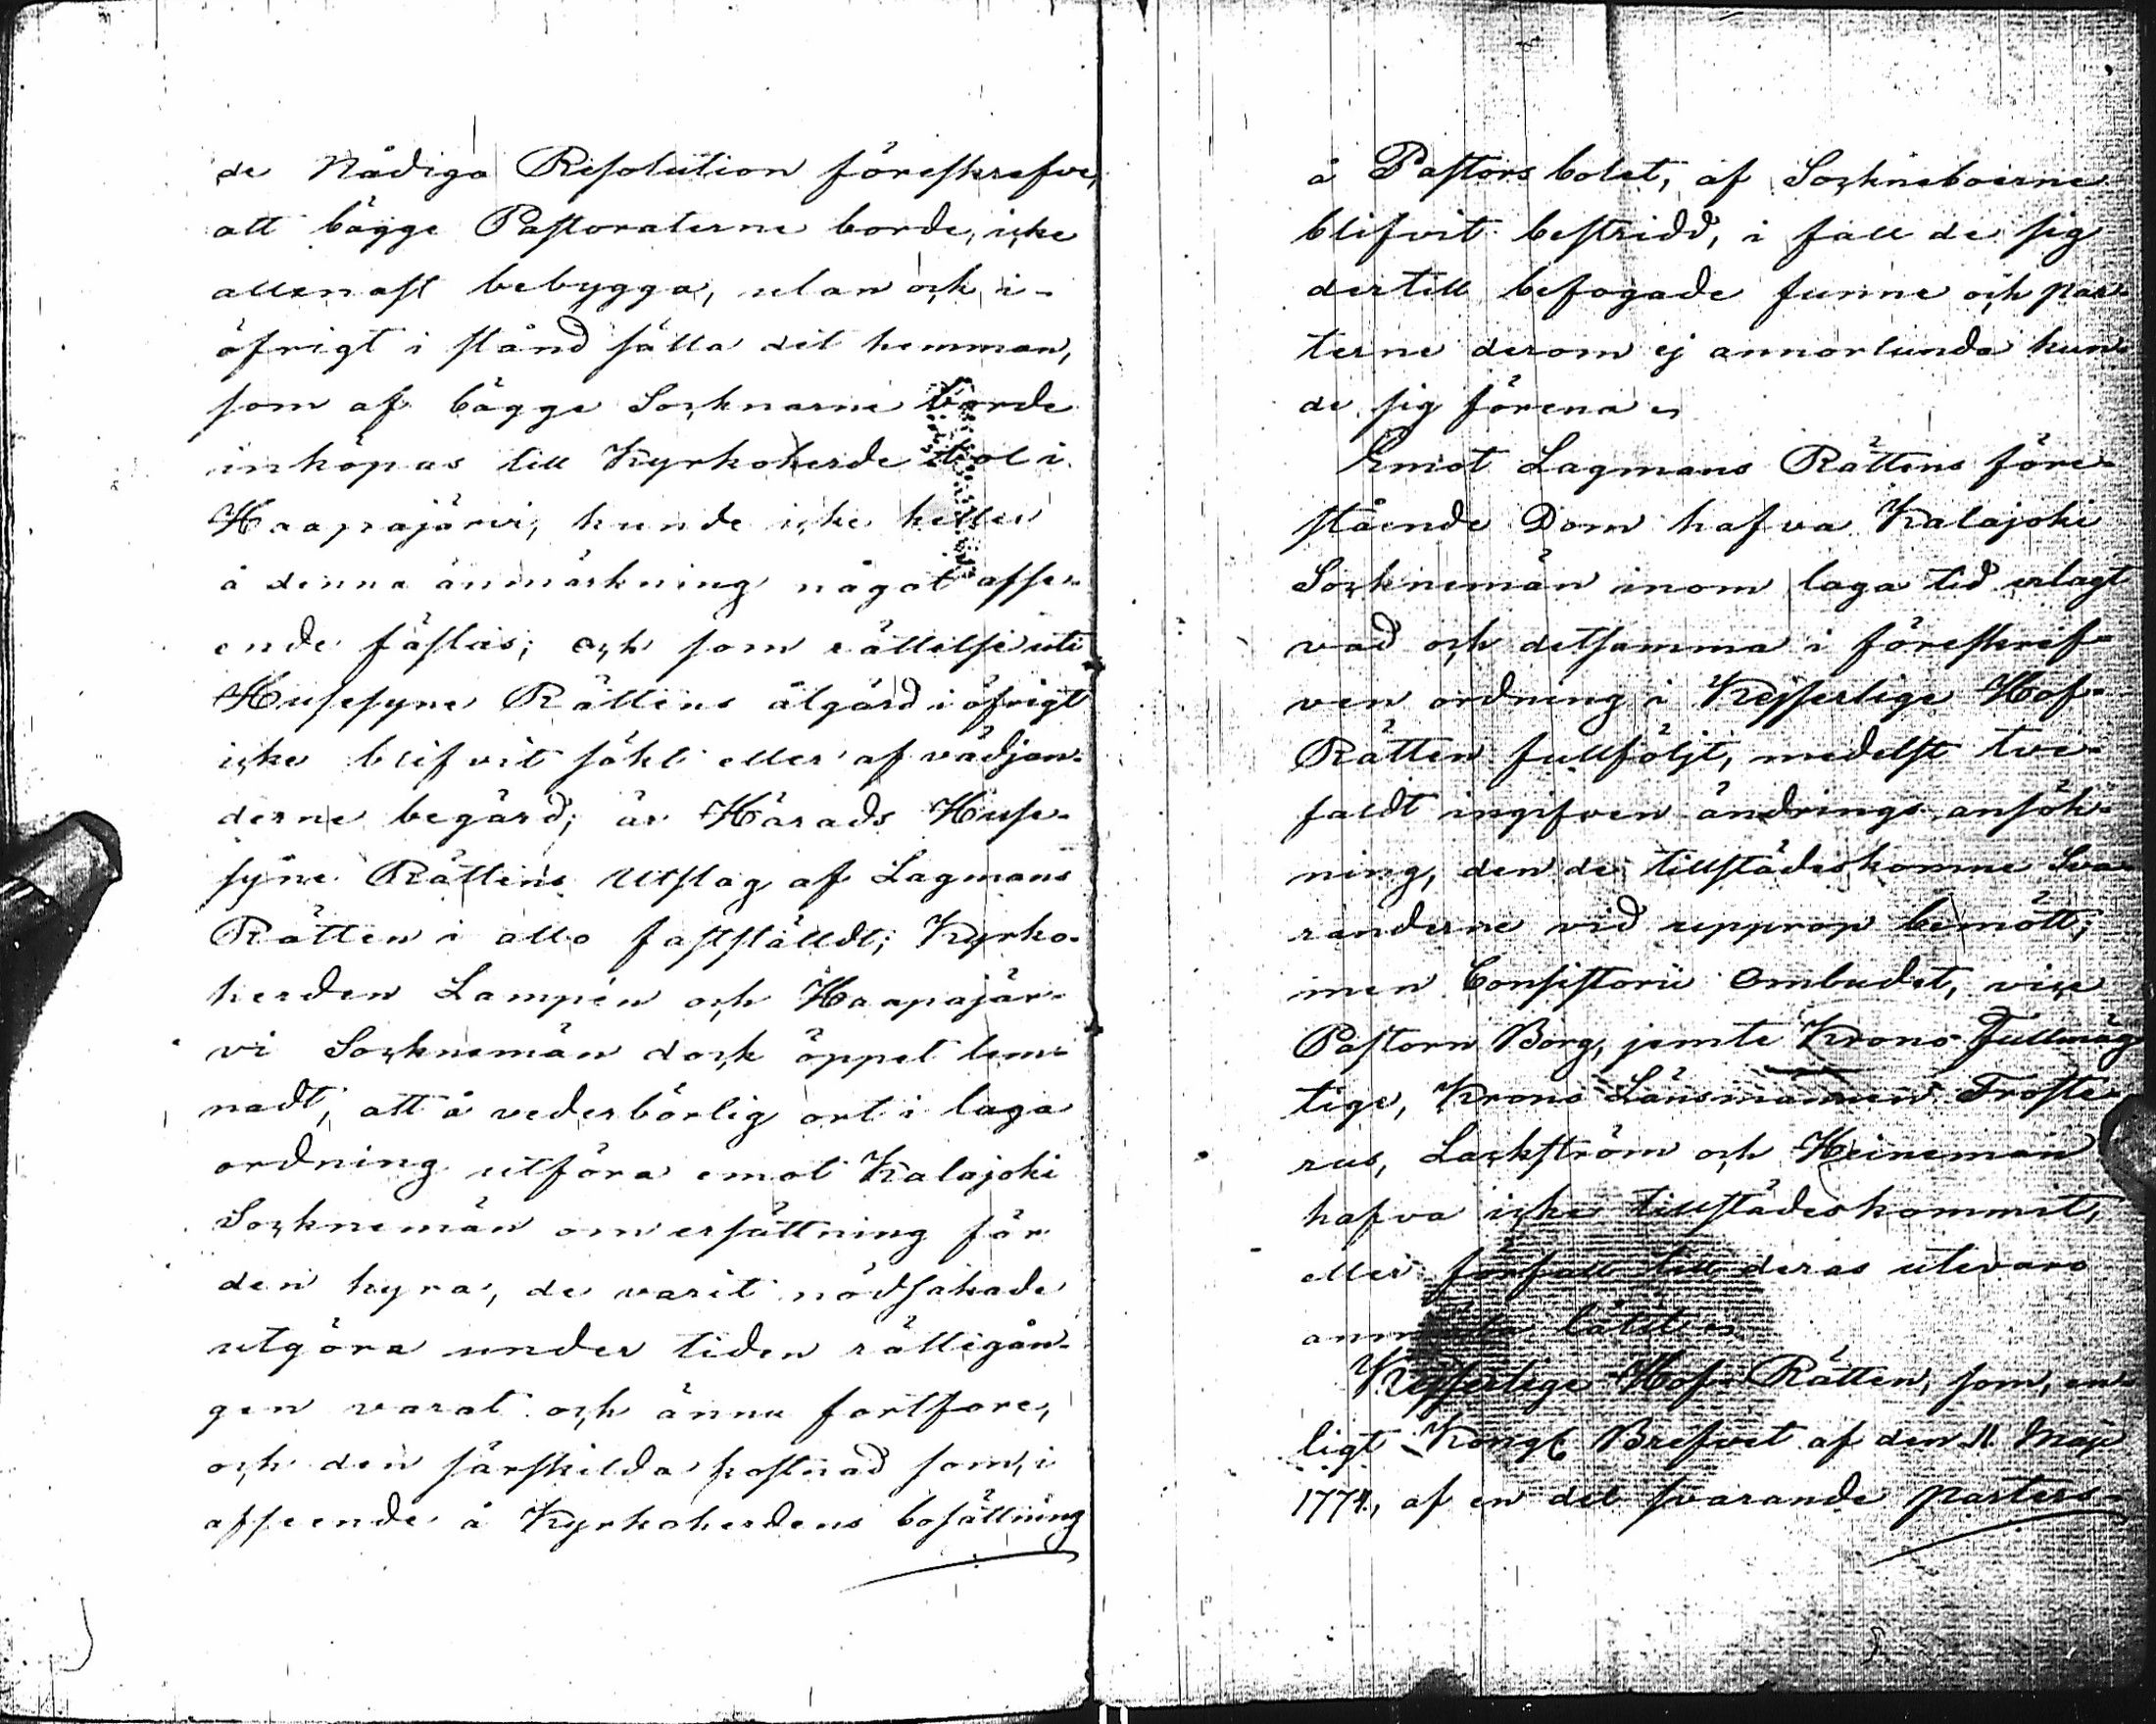 de Nådiga Resolution föreskrefve,
att bägge Pastoraterne borde, icke
allenast bebygga, utan och i-
öfrigt i stånd sätta det hemman,
som af bägge Socknarne borde
inköpas till Kyrkoherde bol i
Haapajärvi, kunde icke heller
å denna anmärkning något afse-
ende fästas; och som rättelse uti
Husesyne Rättens åtgärd i öfrigt
icke blifvit sökt eller af vädjan-
derne begärd; är Härads Huse-
syne Rättens Utslag af Lagmans
Rätten i allo fastställdt; Kyrko-
herden Lampén och Haapajär-
vi Socknemän dock öppet lem-
nadt, att å vederbörlig ort i laga
ordning utföra emot Kalajoki
Socknemän om ersättning för
den hyra, de varit nödsakade
utgöra under tiden rättegån-
gen varat och ännu fortfore,
och den särskilda kostnad som, i
afseende å Kyrkoherdens bosättning
å Pastors bolet, af Sockneboerne
blifvit bestridd, i fall de sig
dertill befogade funne och par-
terne derom ej annorlunda kun-
de sig förena.
Emot Lagmans Rättens före-
stående Dom hafva Kalajoki
Socknemän inom laga tid erlagt
vad och detsamma i föreskref-
ven ordning i Kejserlige Hof-
Rätten fullföljt, medelst tve-
faldt ingifven ändrings ansök-
ning, den de tillstädeskomne Sva-
randerne vid upprop bemött;
men Consistorii Ombudet, vice
Pastorn Borg, jemte Krono Fullmäg-
tige, Krono Länsmännen Froste-
rus, Lackström och Heineman
hafva icke tillstädeskommit,
eller förfall till deras utevaro
anmäla låtit.
Kejserlige Hof-Rätten, som, en-
ligt Kongl Brefvet af den 11 Maji
1774, af en del svarande parters